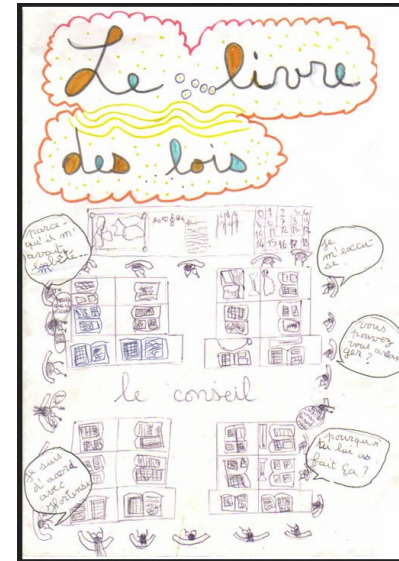 Le livre
des lois
parce
qu'il m'
avait
Je
m'excu
se.
vous
pouvez
vous arran
ger?
le conseil
pourquoi
tu lui as
fait ça?
Je suis
d'acord
avec
Hortense